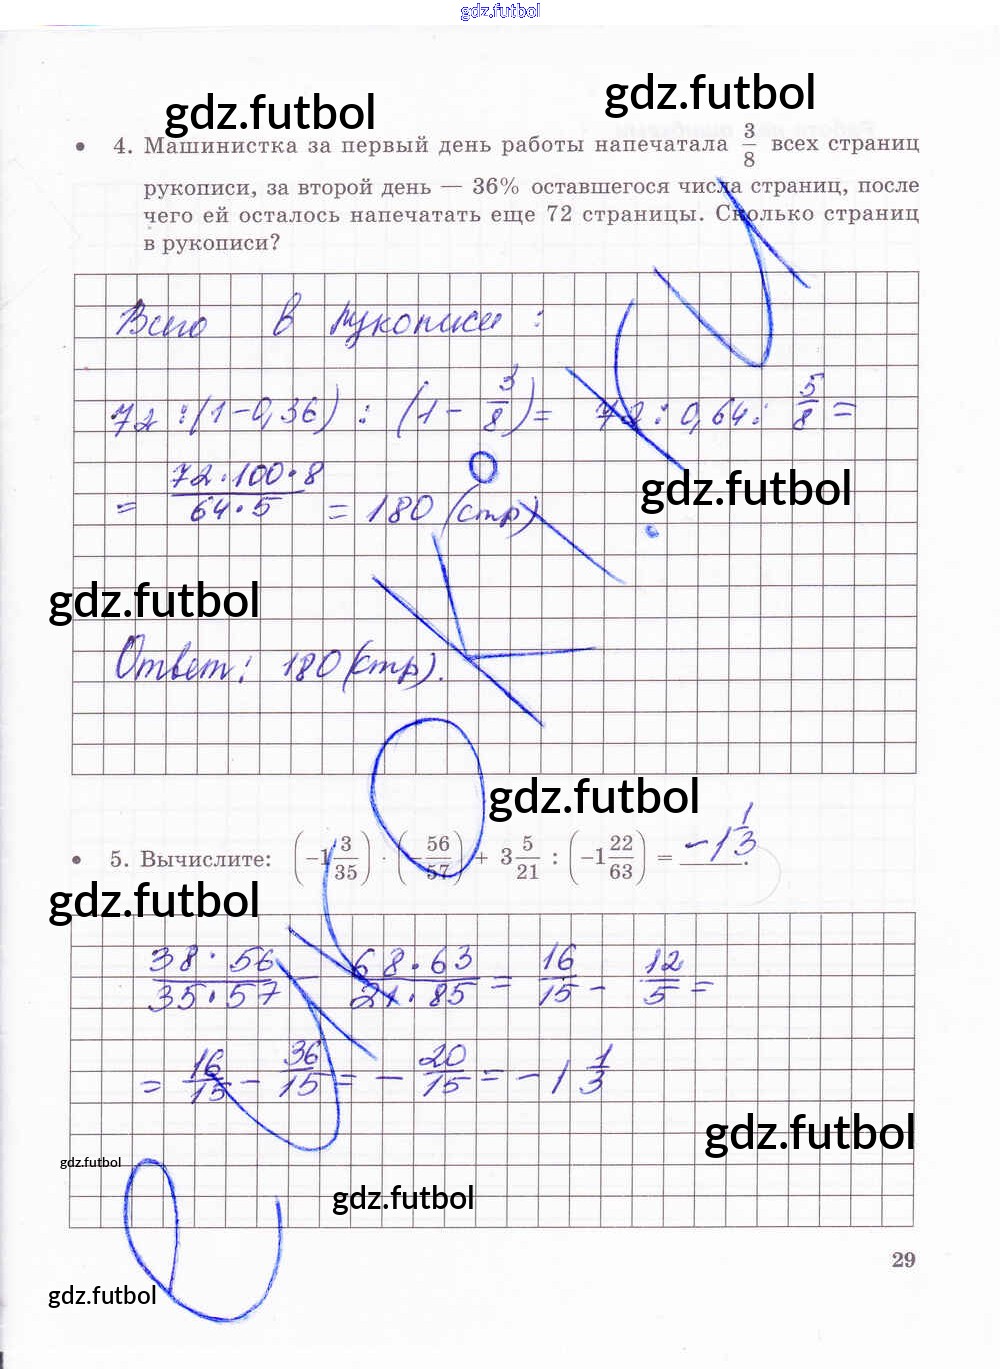 gdz.futbol
gdz.futbol
gdz.futbol
• 4. Машинистка за первый день работы напечатала 3/8 всех страниц
рукописи, за второй день — 36% оставшегося числа страниц, после
чего ей осталось напечатать еще 72 страницы. Сколько страниц
в рукописи?
Всего в рукописи:
72 : (1 - 0,36) : (1 - 3/8) = 72 : 0,64 : 5/8 =
= 72·100·8/64·5 = 180 (стр)
gdz.futbol
gdz.futbol
Ответ: 180 (стр).
gdz.futbol
• 5. Вычислите: (-1 3/35) · (-56/57) + 3 5/21 : (-1 22/63) = -1 1/3.
gdz.futbol
38·56/35·57 - 68·63/21·85 = 16/15 - 12/5 =
= 16/15 - 36/15 = - 20/15 = -1 1/3
gdz.futbol
gdz.futbol
gdz.futbol
29
gdz.futbol